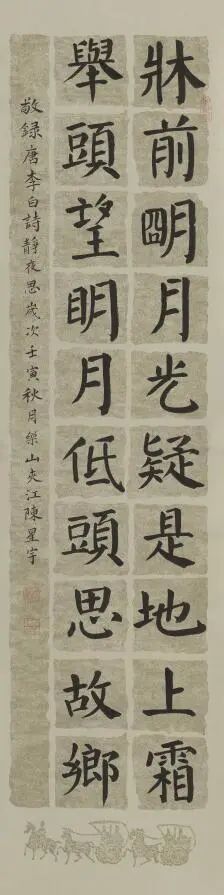 牀前明月光疑是地上霜
舉頭望明月低頭思故鄉
敬錄唐李白詩靜夜思歲次壬寅秋月樂山夾江陳星宇